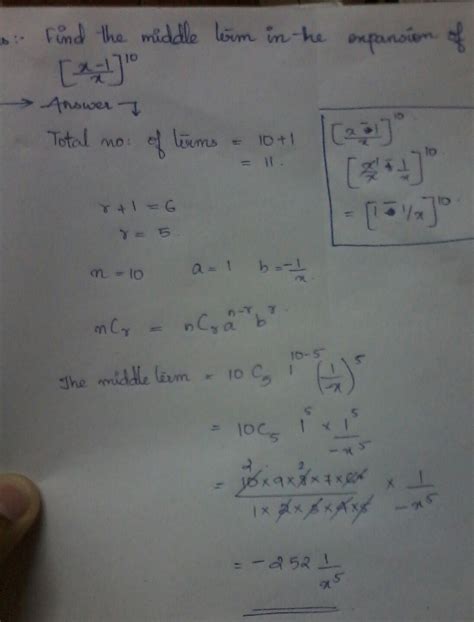 :- Find the middle term in the expansion of
[x-1/x]^10
→ Answer ↴
Total no: of terms = 10+1
= 11.
[x-1/x]^10
[x/x - 1/x]^10
= [1 - 1/x]^10
r + 1 = 6
r = 5.
n = 10 a = 1 b = -1/x
nCr = nCr a^n-r b^r
The middle term = 10 C5 1^10-5 (1/-x)^5
= 10C5 1^5 × 1^5/-x^5
= 10×9×8×7×6/1×2×3×4×5 × 1/-x^5
= -252 1/x^5